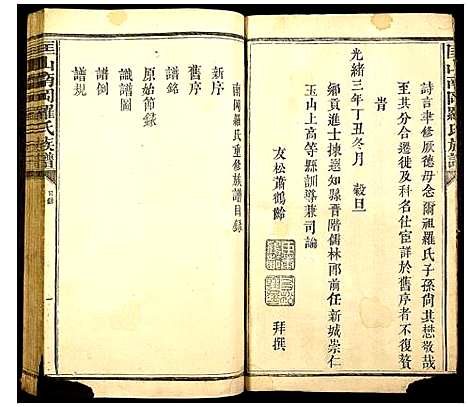 匡山南岡羅氏族譜
詩言聿修厥德毋念爾祖羅氏子孫尙其懋敬哉
至其分合遷徙及科名仕宦詳於舊序者不復贅
旹
光緒三年丁丑冬月 穀旦
鄉貢進士揀選知縣晉階儒林郎前任新城崇仁
玉山上高等縣訓導兼司諭
友松蕭鶴齡 拜撰
南岡羅氏重修族譜目錄
新序
舊序
譜銘
原始節錄
識譜圖
譜例
譜規
匡山南岡羅氏族譜
目錄
一